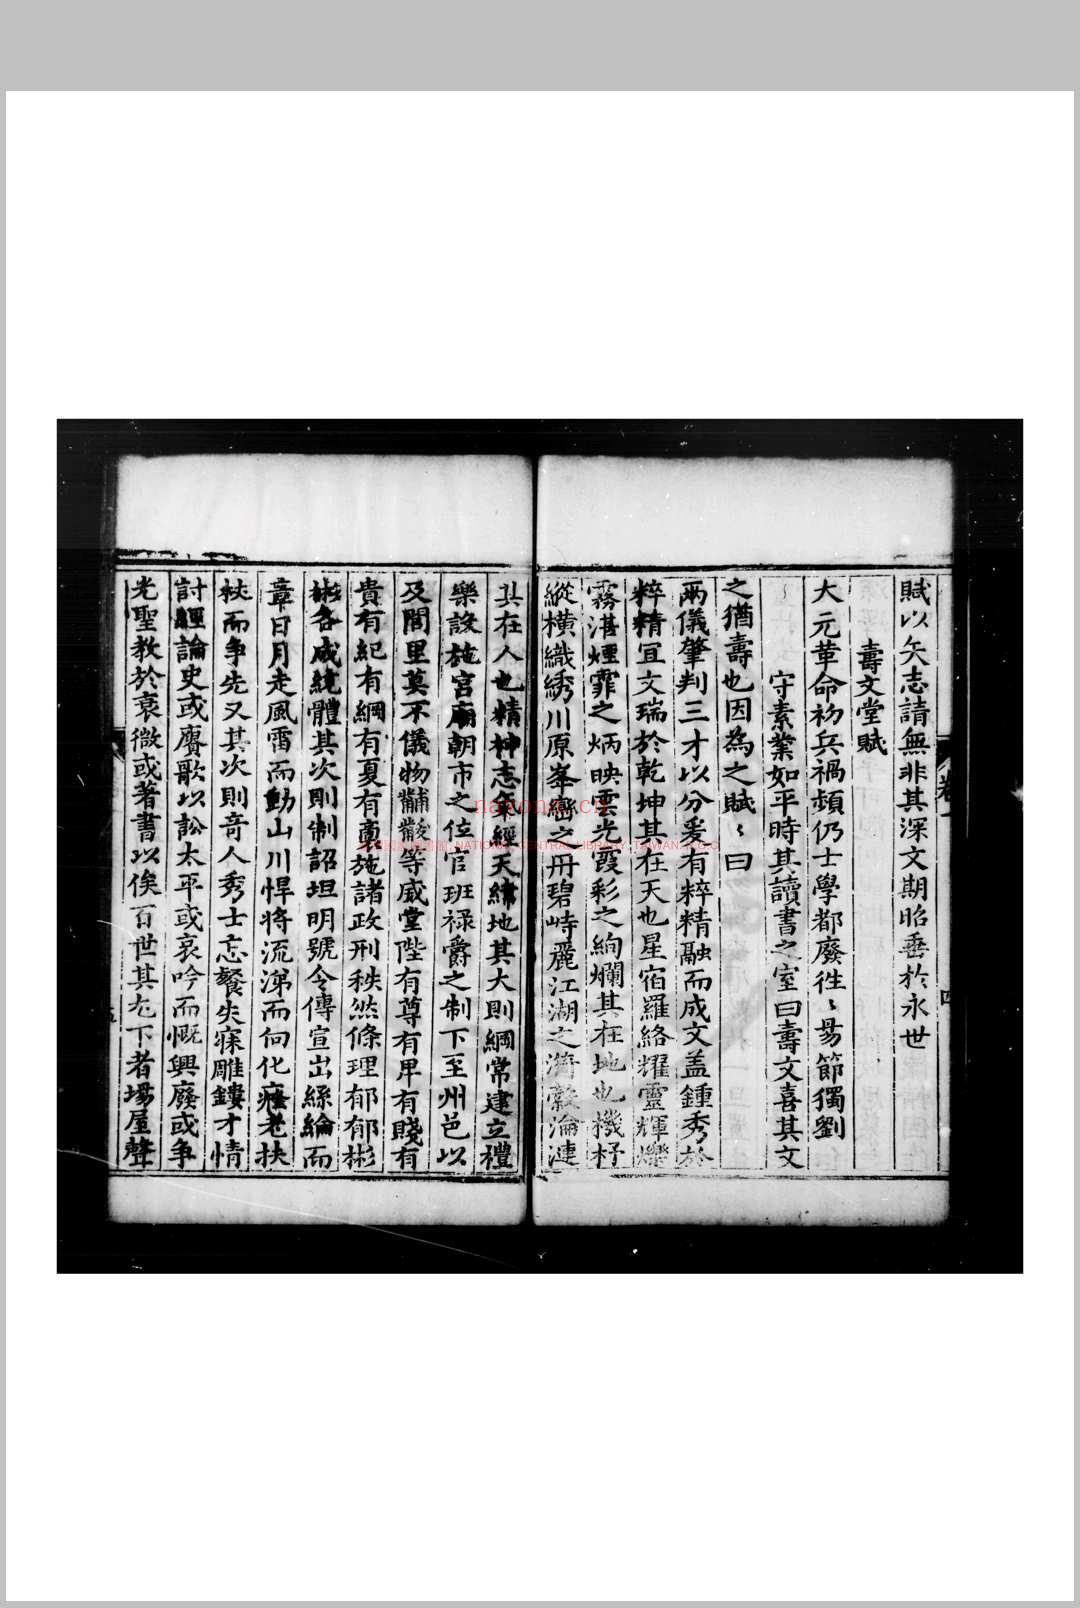 賦以矢志請無非其深文期昭垂於永世
壽文堂賦
大元革命初兵禍頻仍士學都廢徃〻易節獨劉
守素業如平時其讀書之室曰壽文喜其文
之猶壽也因為之賦〻曰
兩儀肇判三才以分爰有粹精融而成文盖鍾秀於
粹精宜文瑞於乾坤其在天也星宿羅絡耀靈輝爍
霧湛煙霏之炳映雲光霞彩之絢爛其在地也機杼
縱橫織綉川原峯巒之丹碧峙麗江湖之漪縠淪漣
其在人也精神志氣經天緯地其大則綱常建立禮
樂設施宮廟朝市之位官班禄爵之制下至州邑以
及閭里莫不儀物黼黻等威堂陛有尊有卑有賤有
貴有紀有綱有夏有裔施諸政刑秩然條理郁郁彬
彬各成統體其次則制詔坦明號令傳宣出絲綸而
章日月走風雷而動山川悍將流涕而向化癃老扶
杖而争先又其次則竒人秀士忘餐失寐雕鏤才情
討經論史或賡歌以訟太平或哀吟而慨興廢或争
光聖教於衰微或著書以俟百世其尢下者場屋聲
卷一
四
五
nayona.cn
NATIONAL CENTRAL LIBRARY, TAIWAN, R.O.C